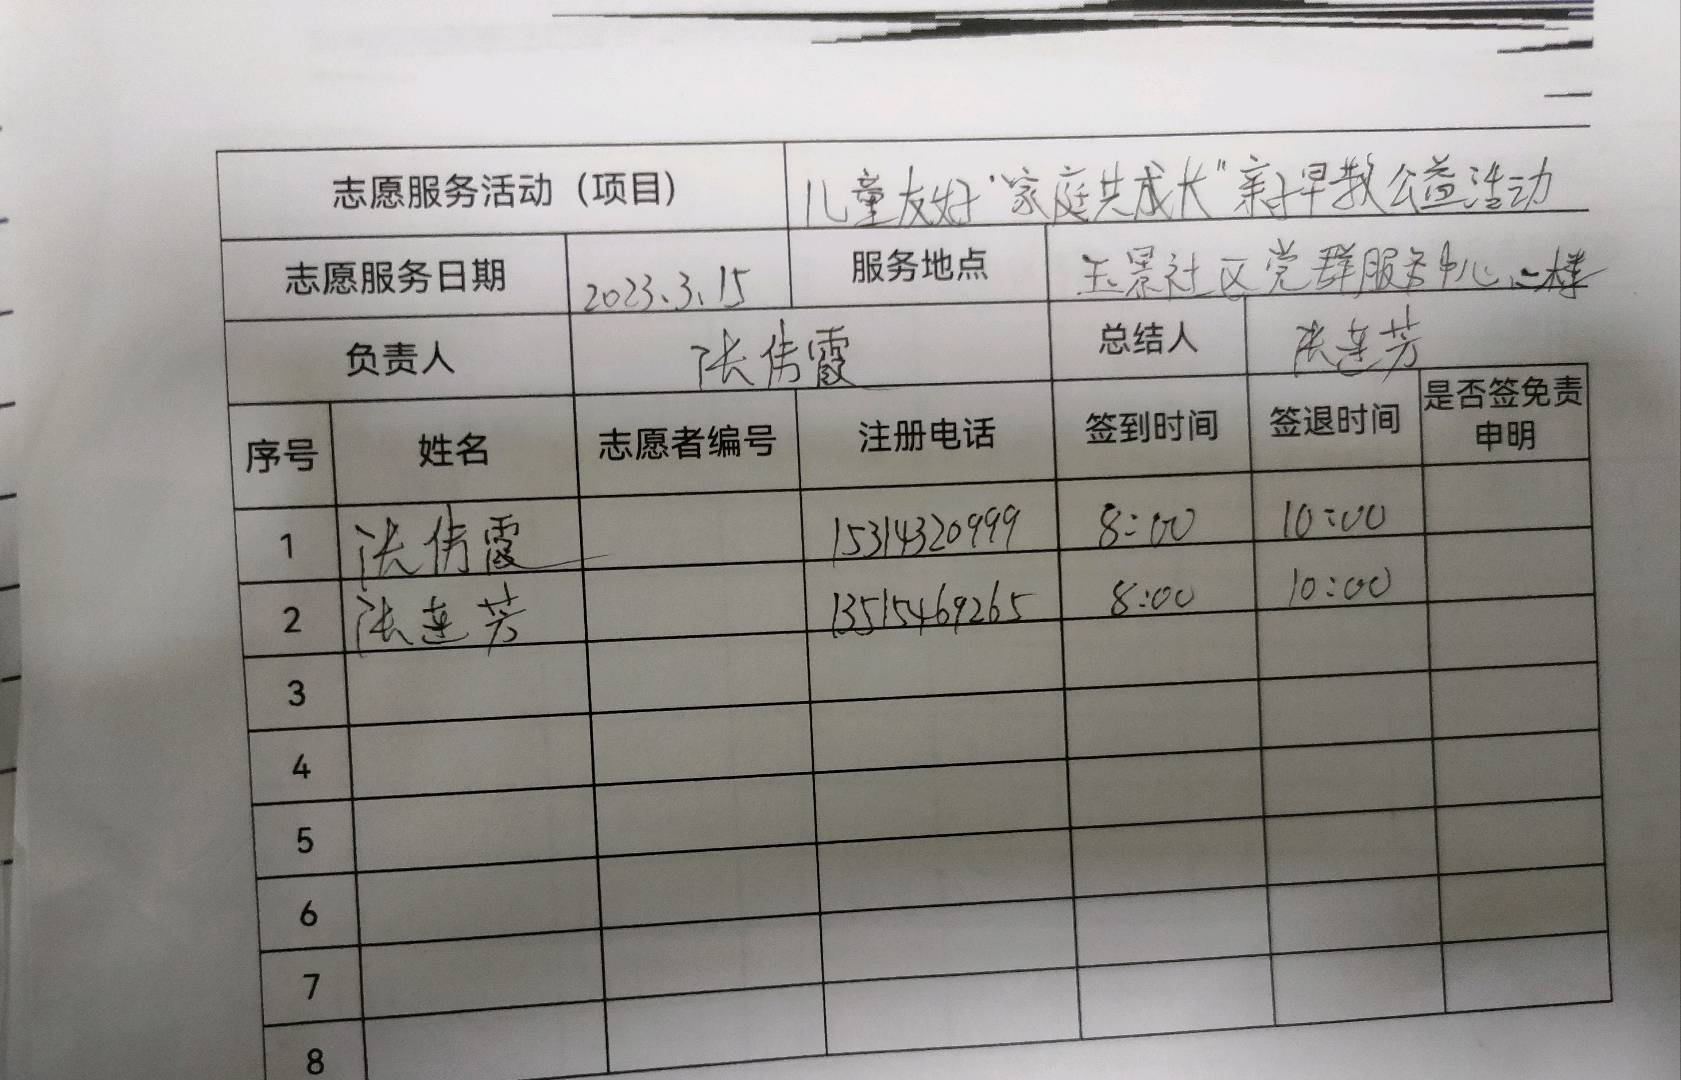 志愿服务活动（项目） 儿童友好“家庭共成长”亲子早教公益活动
志愿服务日期 2023.3.15 服务地点 玉景社区党群服务中心二楼
负责人 张倩霞 总结人 张莲芳
序号 姓名 志愿者编号 注册电话 签到时间 签退时间 是否签免责
申明
1 张倩霞 15314320999 8:00 10:00
2 张莲芳 13515469265 8:00 10:00
3
4
5
6
7
8